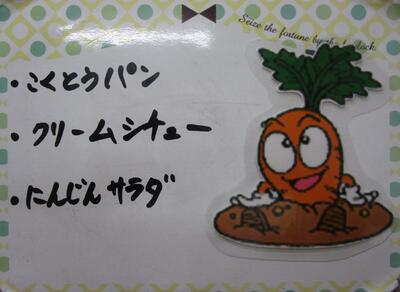 Seize the fortune by the forelock.
・こくとうパン
・クリームシチュー
・にんじんサラダ